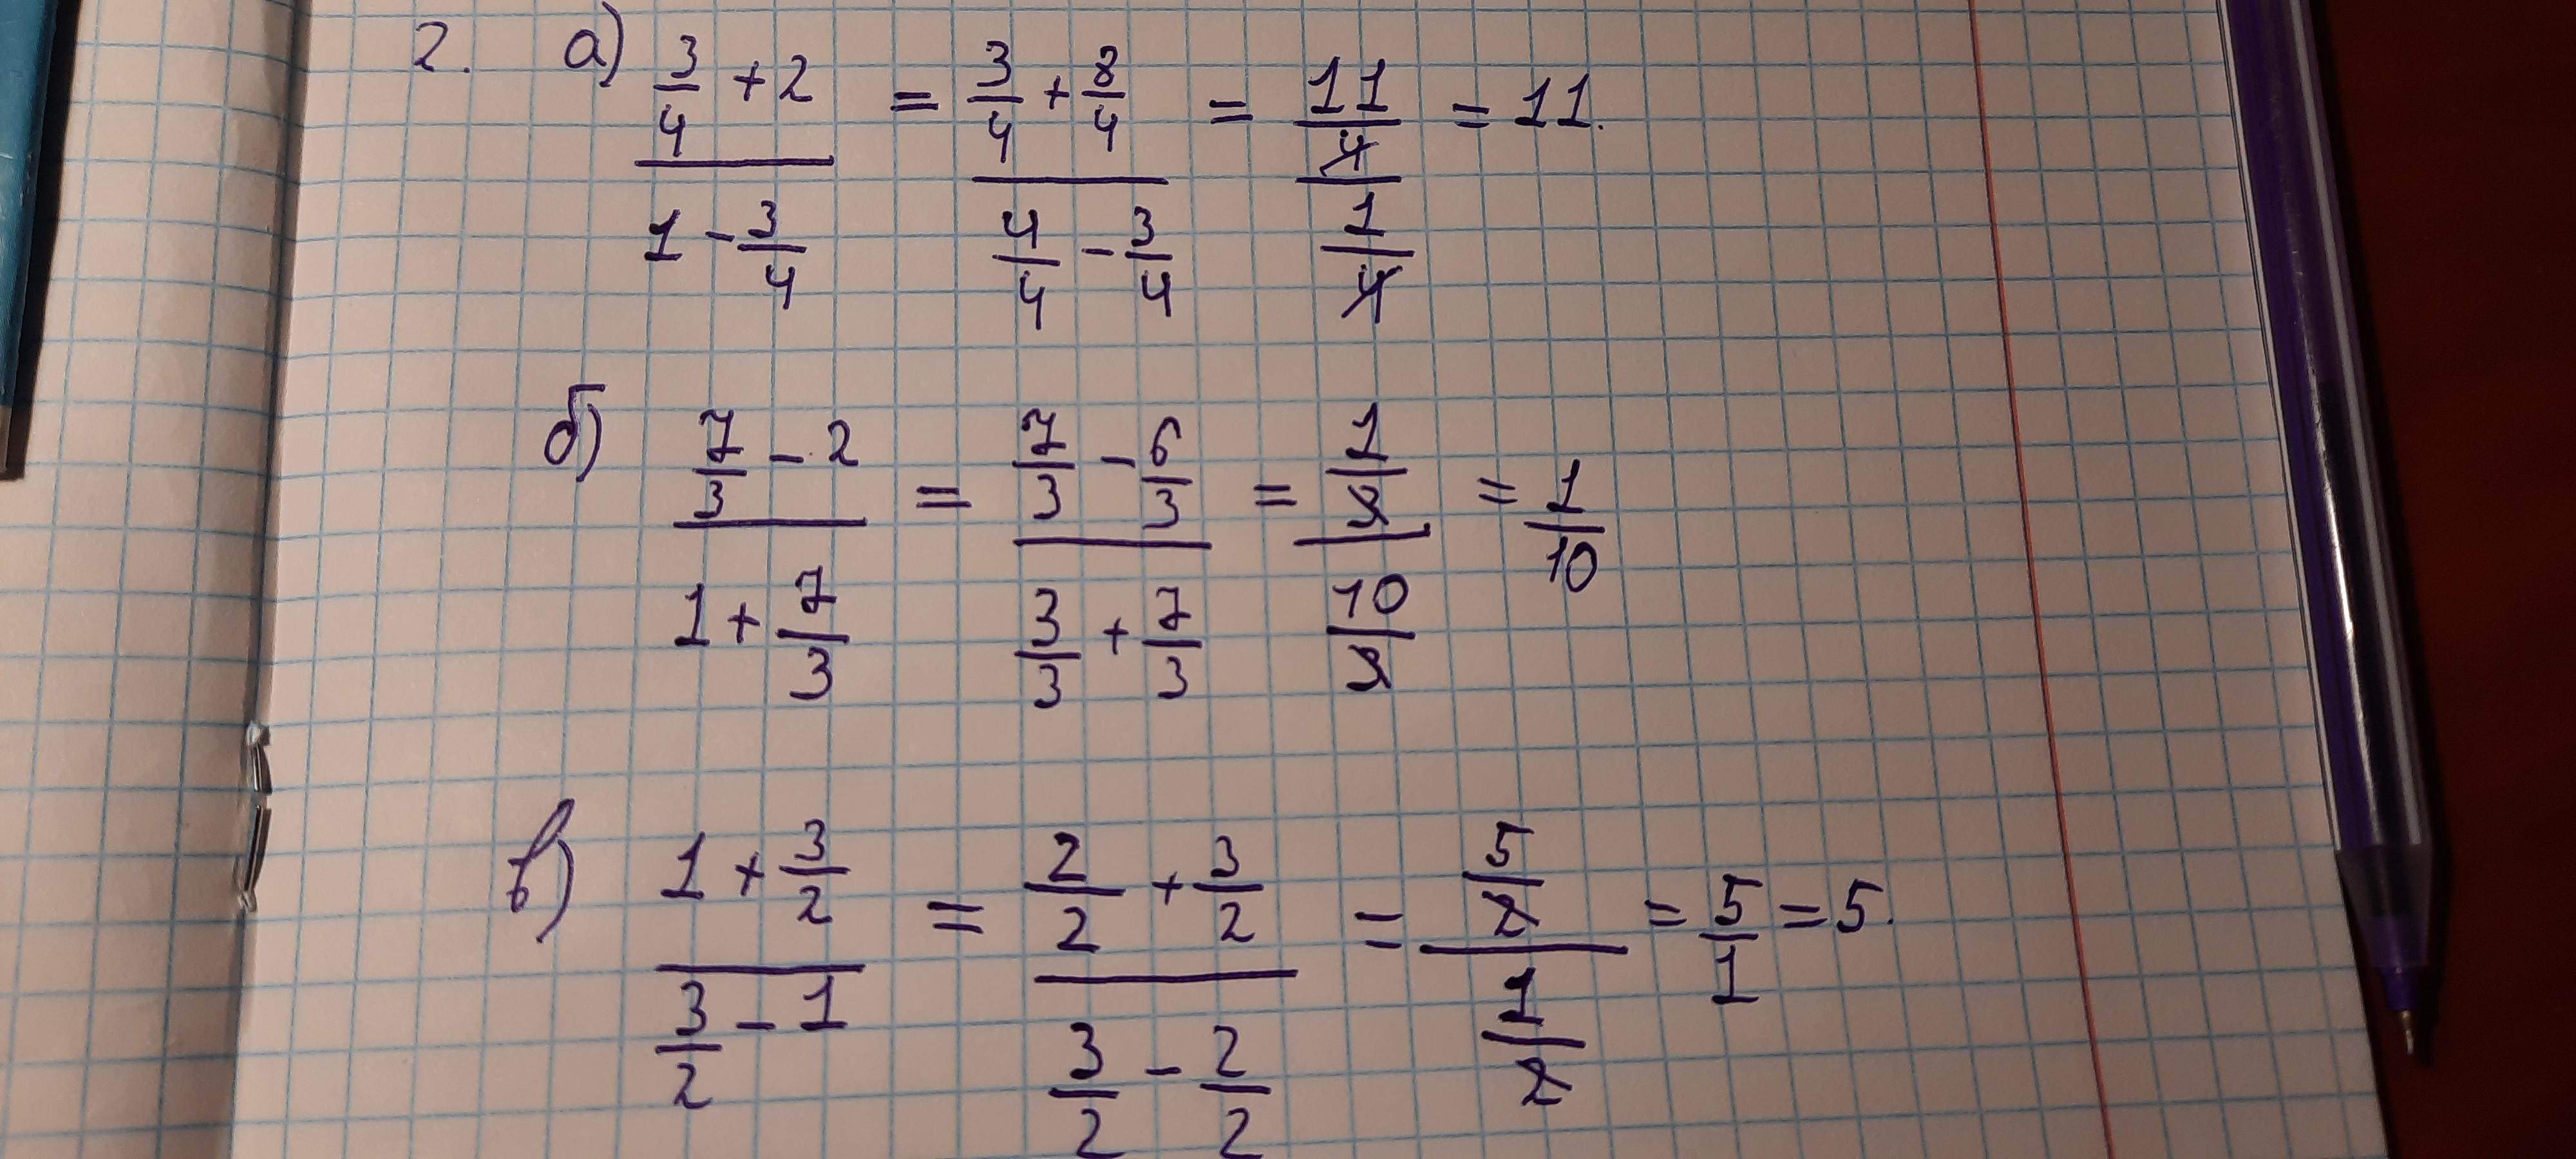 2. а) (3/4 + 2)/(1 - 3/4) = (3/4 + 8/4)/(4/4 - 3/4) = (11/4)/(1/4) = 11.
б) (7/3 - 2)/(1 + 7/3) = (7/3 - 6/3)/(3/3 + 7/3) = (1/3)/(10/3) = 1/10
в) (1 + 3/2)/(3/2 - 1) = (2/2 + 3/2)/(3/2 - 2/2) = (5/2)/(1/2) = 5/1 = 5.